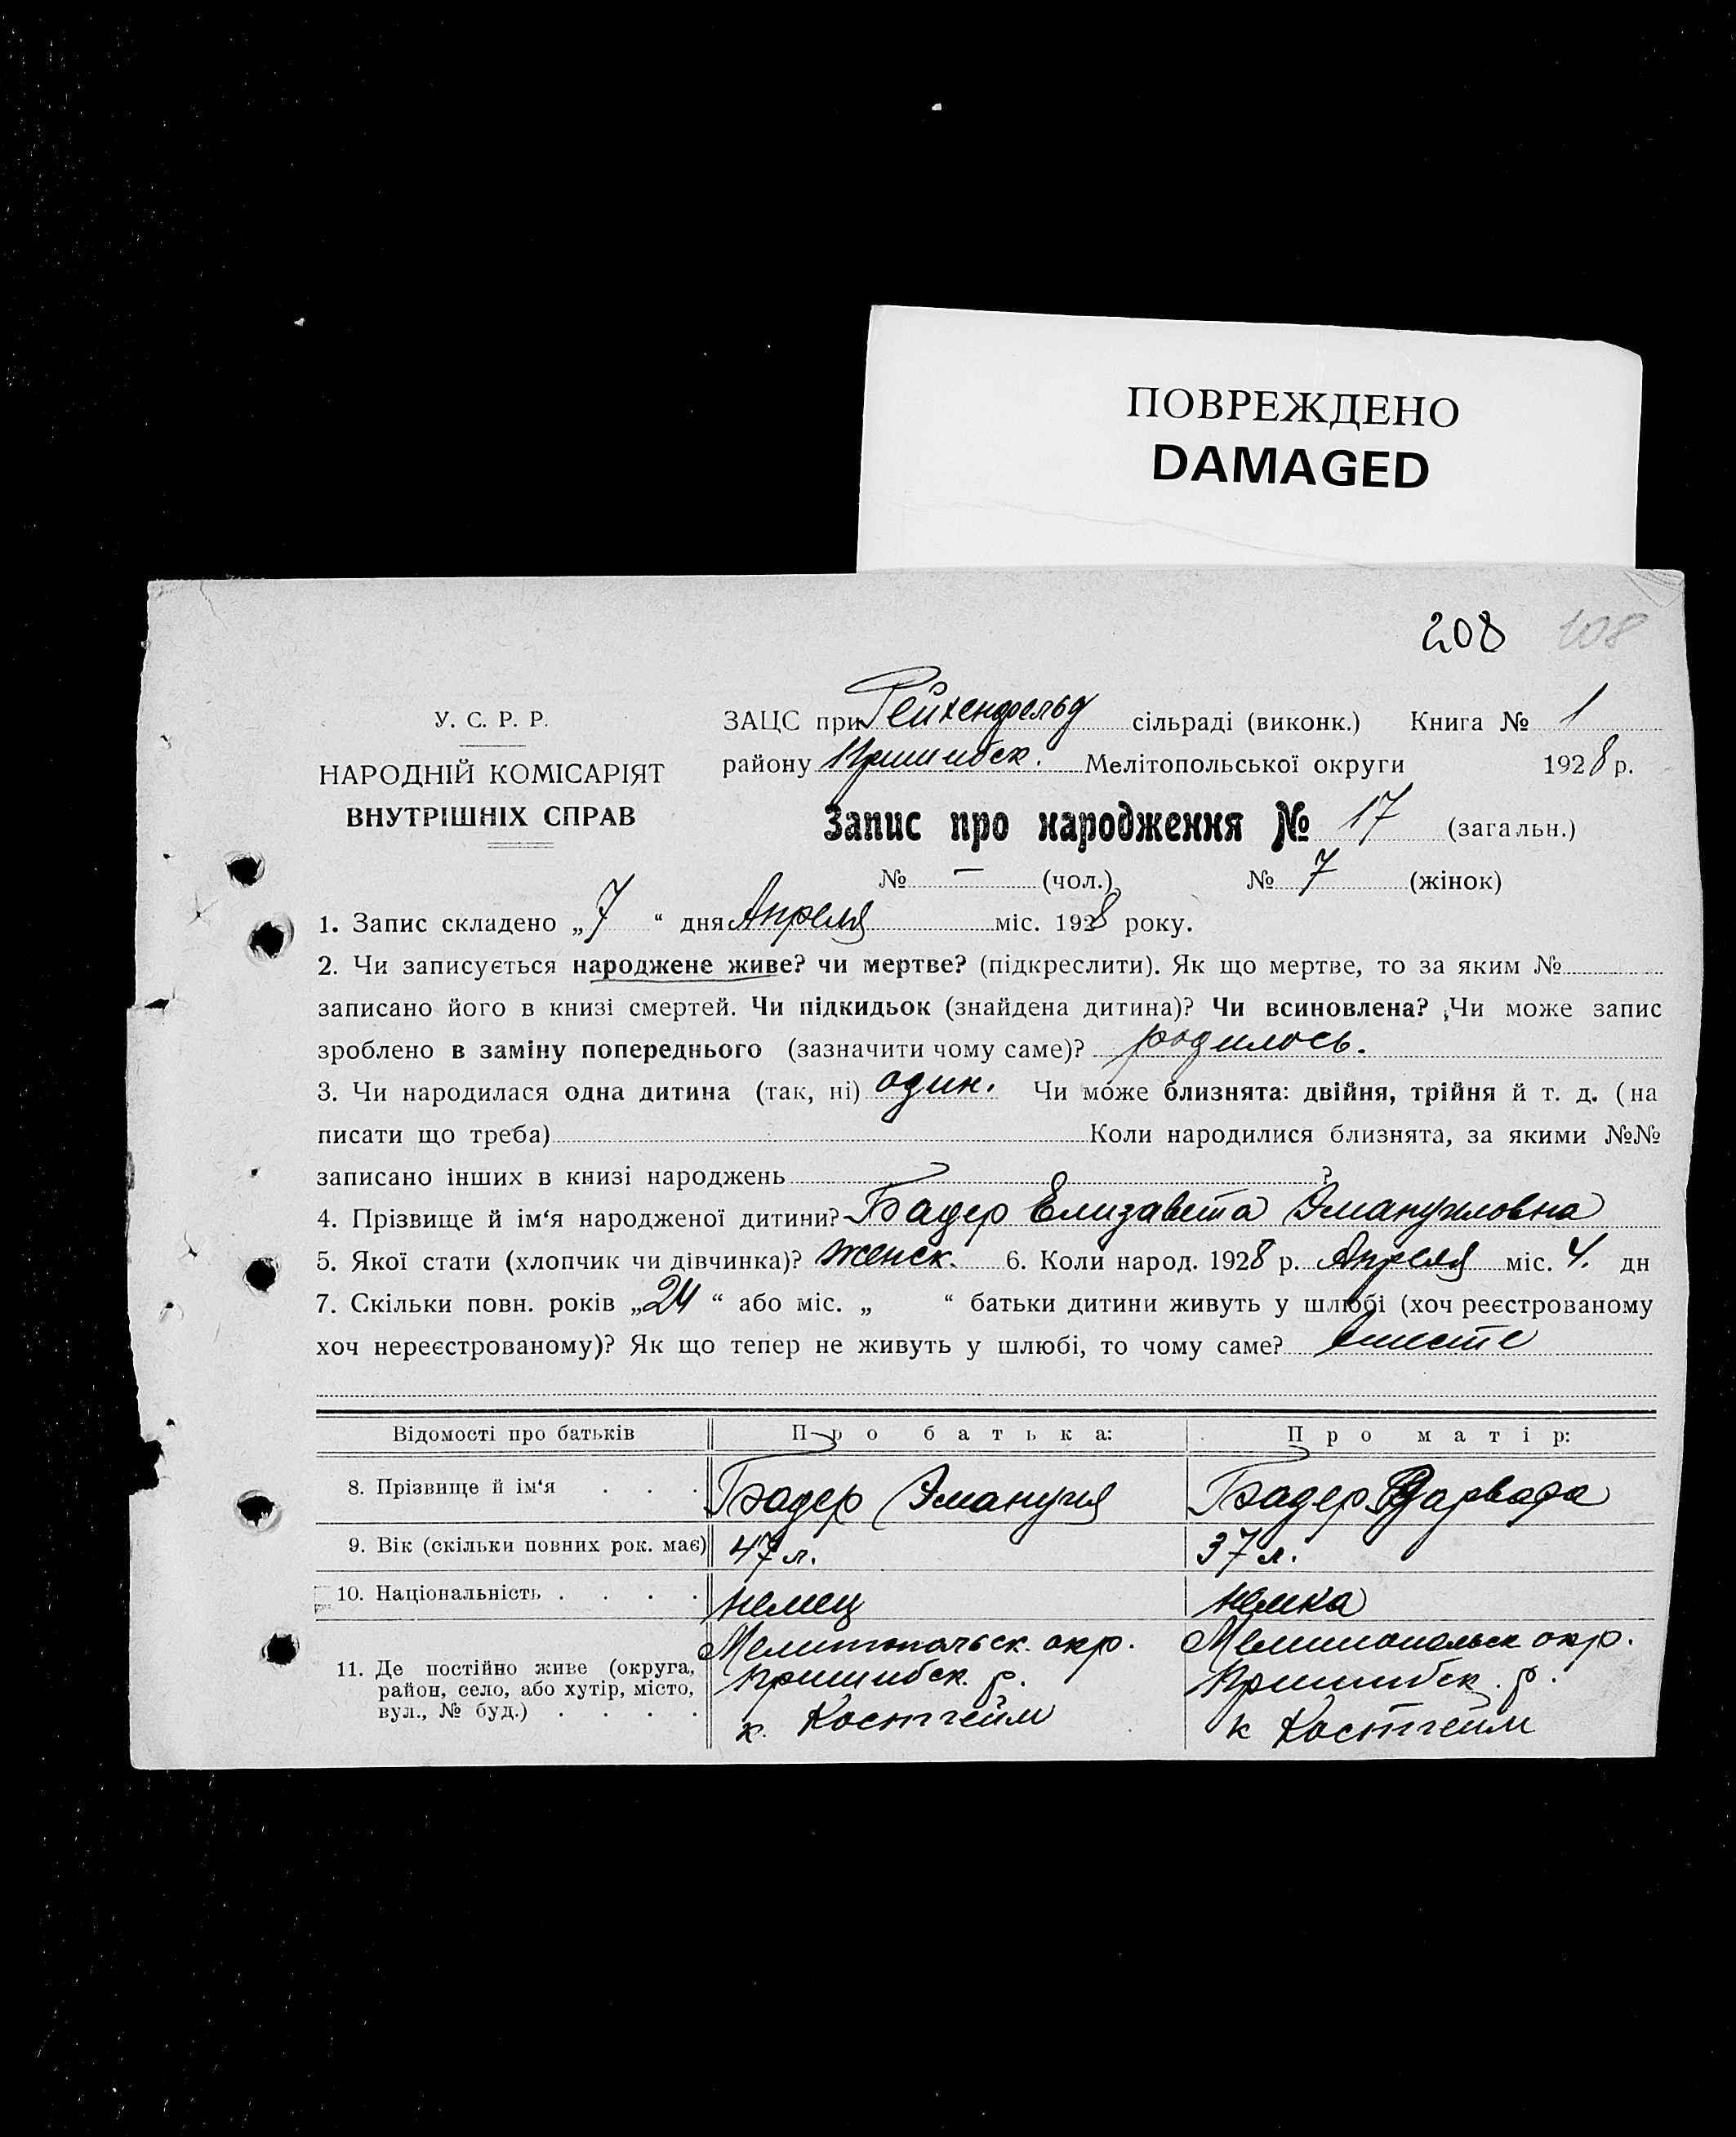 ПОВРЕЖДЕНО
DAMAGED
208 108
У. С. Р. Р.
НАРОДНІЙ КОМІСАРІЯТ
ВНУТРІШНІХ СПРАВ
ЗАЦС при Рейхенфельд сільраді (виконк.) Книга № 1
району Пришибск. Мелітопольської округи 1928 р.
Запис про народження № 17 (загальн.)
№ — (чол.) № 7 (жінок)
1. Запис складено „7“ дня Апреля міс. 1928 року.
2. Чи записується народжене живе? чи мертве? (підкреслити). Як що мертве, то за яким №
записано його в книзі смертей. Чи підкидьок (знайдена дитина)? Чи всиновлена? Чи може запис
зроблено в заміну попереднього (зазначити чому саме)? родилось.
3. Чи народилася одна дитина (так, ні) один. Чи може близнята: двійня, трійня й т. д. (на
писати що треба) Коли народилися близнята, за якими №№
записано інших в книзі народжень ?
4. Прізвище й ім‘я народженої дитини? Бадер Елизавета Эмануиловна
5. Якої стати (хлопчик чи дівчинка)? женск. 6. Коли народ. 1928 р. Апреля міс. 4. дн
7. Скільки повн. років „24“ або міс. „ “ батьки дитини живуть у шлюбі (хоч реєстрованому
хоч нереєстрованому)? Як що тепер не живуть у шлюбі, то чому саме? вместе
Відомості про батьків Про батька: Про матір:
8. Прізвище й ім‘я . . . Бадер Эмануил Бадер Варвара
9. Вік (скільки повних рок. має) 47 л. 37 л.
10. Національність . . . . немец немка
11. Де постійно живе (округа, район, село, або хутір, місто, вул., № буд.) . . . .
Мелитопольск. окр. Мелитопольск окр.
Пришибск. р. Пришибск. р.
к. Костгейм к Костгейм